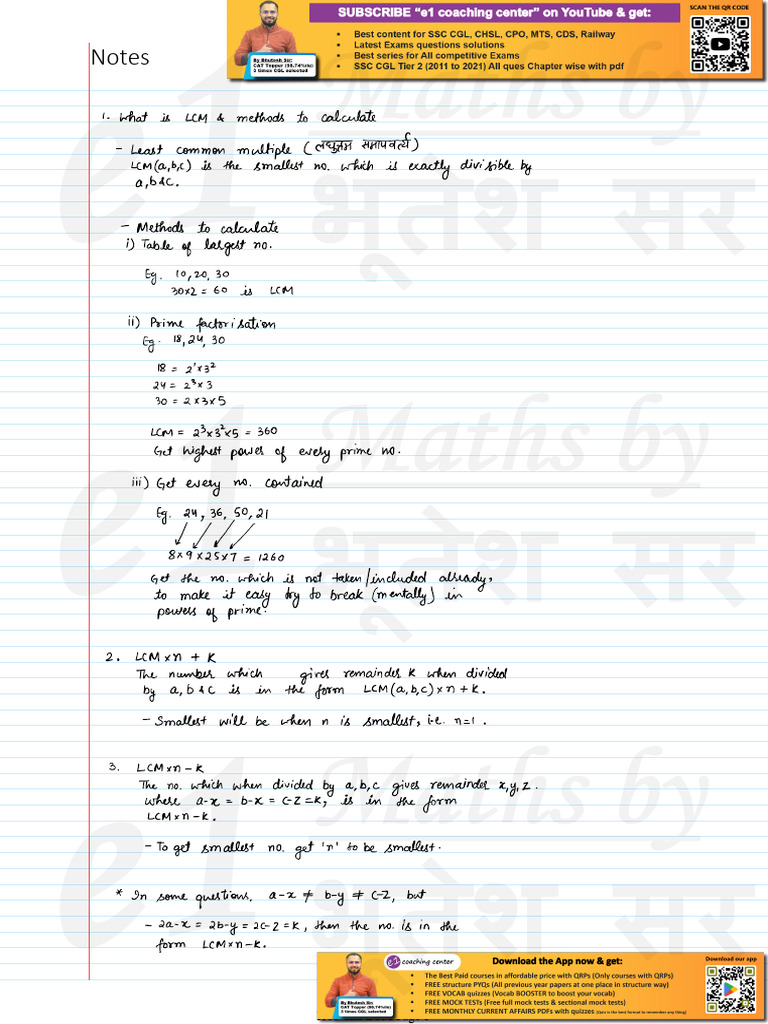 SUBSCRIBE “e1 coaching center” on YouTube & get:
SCAN THE QR CODE
• Best content for SSC CGL, CHSL, CPO, MTS, CDS, Railway
• Latest Exams questions solutions
• Best series for All competitive Exams
• SSC CGL Tier 2 (2011 to 2021) All ques Chapter wise with pdf
By Bhutesh Sir:
CAT Topper (99.74%ile)
3 times CGL selected
Notes
e1 Maths by
भूतेश सर
1. What is LCM & methods to calculate
- Least common multiple (लघुत्तम समापवर्त्य)
LCM(a,b,c) is the smallest no. which is exactly divisible by
a,b&c.
- Methods to calculate
i) Table of largest no.
Eg. 10,20,30
30×2 = 60 is LCM
ii) Prime factorisation
Eg. 18,24,30
18 = 2¹×3²
24 = 2³×3
30 = 2×3×5
LCM = 2³×3²×5 = 360
Get highest power of every prime no.
e1 Maths by
भूतेश सर
iii) Get every no. contained
Eg. 24, 36, 50, 21
8×9×25×7 = 1260
Get the no. which is not taken/included already,
to make it easy try to break (mentally) in
powers of prime.
2. LCM×n + K
The number which gives remainder K when divided
by a,b&c is in the form LCM(a,b,c)×n+K.
- Smallest will be when n is smallest, i.e. n=1.
3. LCM×n-K
The no. which when divided by a,b,c gives remainder x,y,z.
where a-x = b-x = c-z=K, is in the form
LCM×n-K.
- To get smallest no. get 'n' to be smallest.
e1 Maths by
भूतेश सर
* In some questions, a-x ≠ b-y ≠ c-z, but
- 2a-x = 2b-y = 2c-z = K, then the no. is in the
form LCM×n-K.
e1 coaching center
Download the App now & get:
Download our app
• The Best Paid courses in affordable price with QRPs (Only courses with QRPs)
• FREE structure PYQs (All previous year papers at one place in structure way)
• FREE VOCAB quizzes (Vocab BOOSTER to boost your vocab)
• FREE MOCK TESTs (Free full mock tests & sectional mock tests)
• FREE MONTHLY CURRENT AFFAIRS PDFs with quizzes (Quiz is the best format to remember any thing)
By Bhutesh Sir:
CAT Topper (99.74%ile)
3 times CGL selected